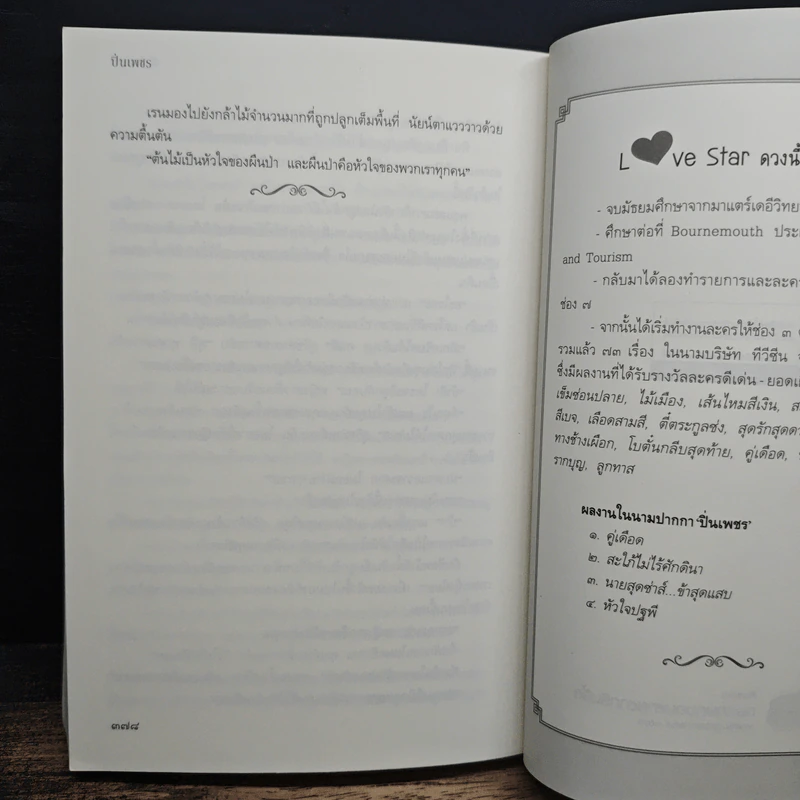 ปิ่นเพชร
เรนมองไปยังกล้าไม้จำนวนมากที่ถูกปลูกเต็มพื้นที่ นัยน์ตาแวววาวด้วย
ความตื้นตัน
“ต้นไม้เป็นหัวใจของผืนป่า และผืนป่าคือหัวใจของพวกเราทุกคน”
๓๗๘
L ve Star ดวงนี้
- จบมัธยมศึกษาจากมาแตร์เดอีวิทย
- ศึกษาต่อที่ Bournemouth ประ
and Tourism
- กลับมาได้ลองทำรายการและละคร
ช่อง ๗
- จากนั้นได้เริ่มทำงานละครให้ช่อง ๓
รวมแล้ว ๗๓ เรื่อง ในนามบริษัท ทีวีซีน
ซึ่งมีผลงานที่ได้รับรางวัลละครดีเด่น - ยอดเ
เข็มซ่อนปลาย, ไม้เมือง, เส้นไหมสีเงิน, ส
สีเบจ, เลือดสามสี, ตี๋ตระกูลซ่ง, สุดรักสุดดว
ทางช้างเผือก, โบตั๋นกลีบสุดท้าย, คู่เดือด,
รากบุญ, ลูกทาส
ผลงานในนามปากกา ‘ปิ่นเพชร’
๑. คู่เดือด
๒. สะใภ้ไม่ไร้ศักดินา
๓. นายสุดซ่าส์...ข้าสุดแสบ
๔. หัวใจปฐพี